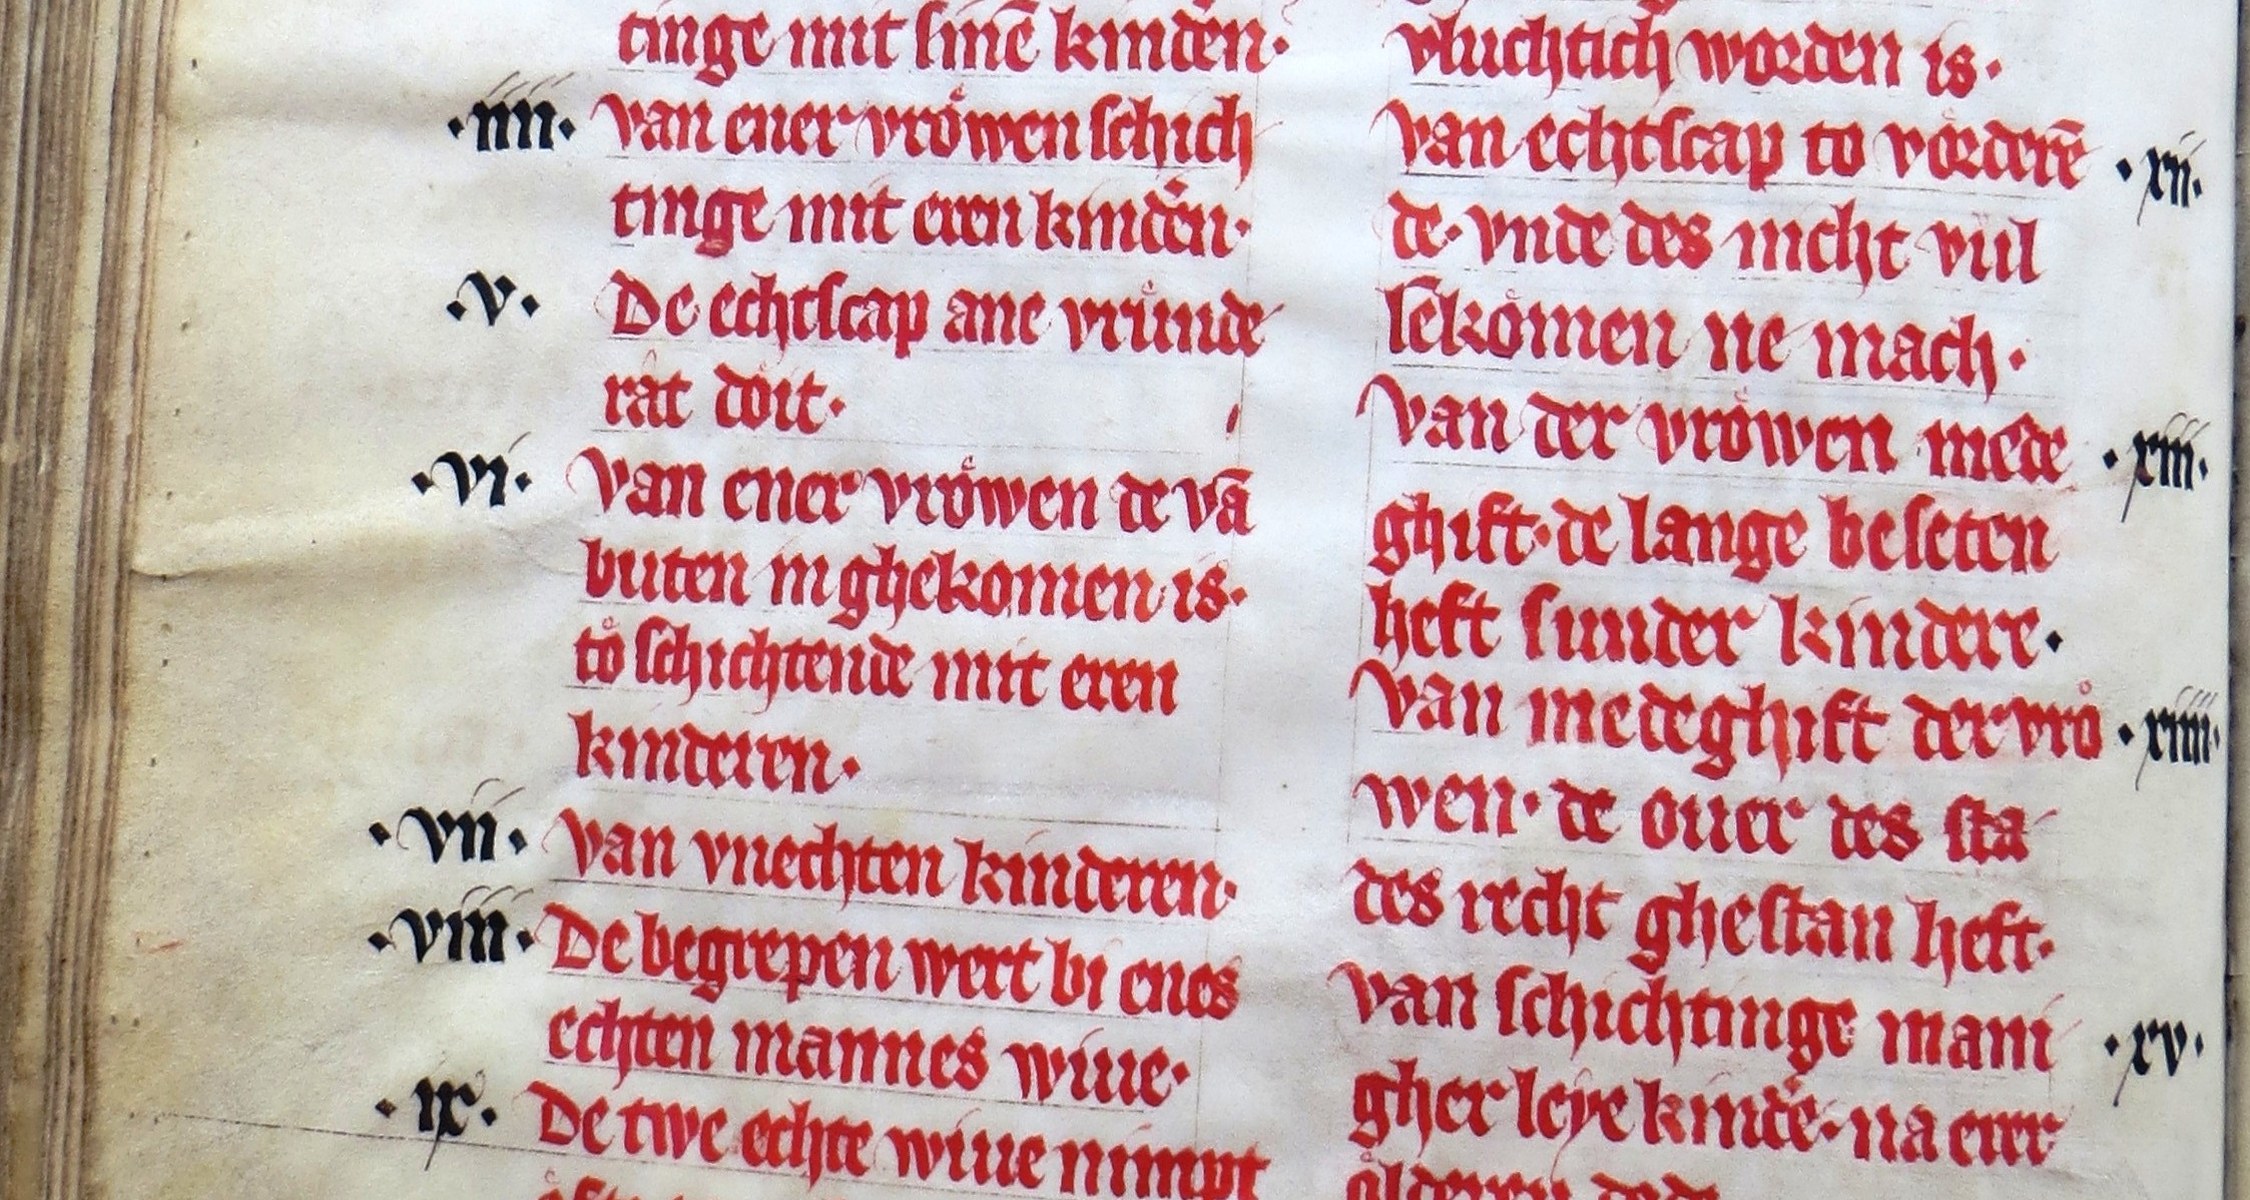 tinge mit sinē kindeͤn·
·iiii· van ener vroͤwen schich
tinge mit eren kindeͤn·
·v· De echtscap ane vruͤnde
rât doͤit·
·vi· van ener vroͤwen de vā
buten in ghekomen is·
toͦ schichtende mit eren
kinderen·
·vii· van vnechten kinderen·
·viii· De begrepen wert bi enes
echten mannes wiue·
·ix· De twe echte wiue nimpt
vluchtich worden is·
van echtscap to voͤrderē ·xii·
de· vnde des nicht vul
lēkoͤmen ne mach·
van der vroͤwen mede ·xiii·
ghift· de lange beseten
heft sunder kindere·
van medeghift der vroͦ ·xiiii·
wen· de ouer des sta
des recht ghestan heft·
van schichtinge mani ·xv·
gher leye kindeͤ· na erer